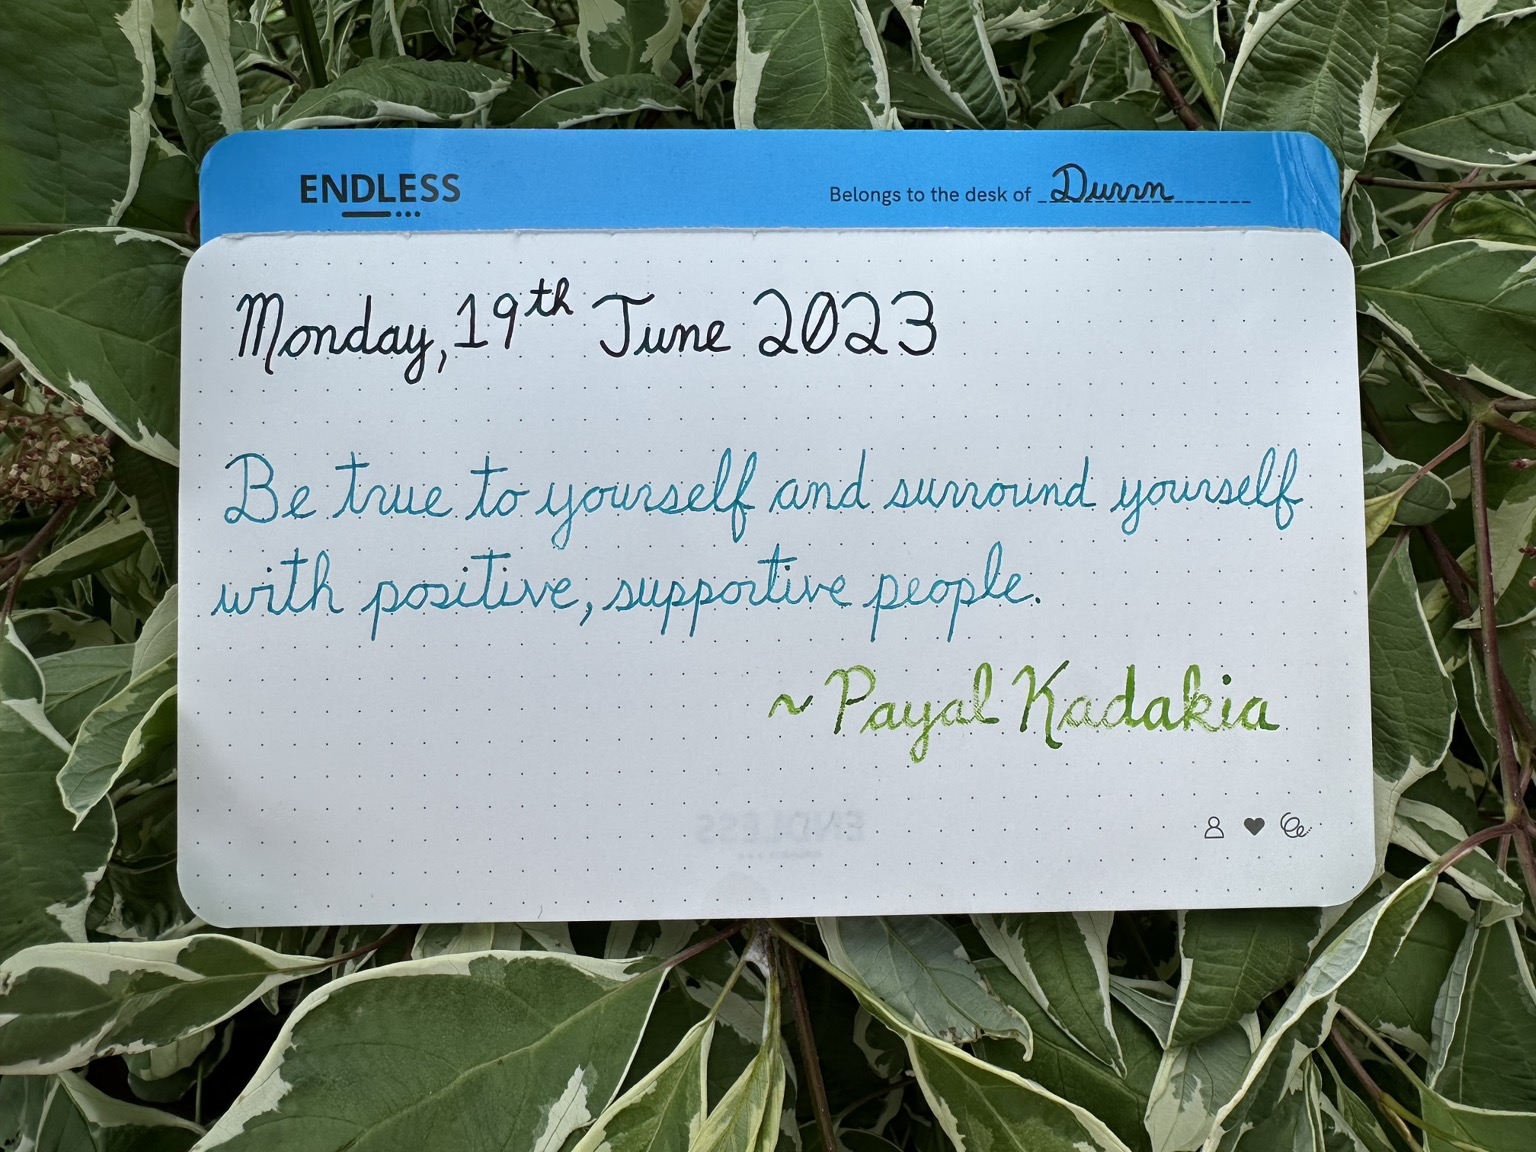 ENDLESS
Belongs to the desk of Durrn
Monday, 19th June 2023
Be true to yourself and surround yourself
with positive, supportive people.
~ Payal Kadakia
ENDLESS